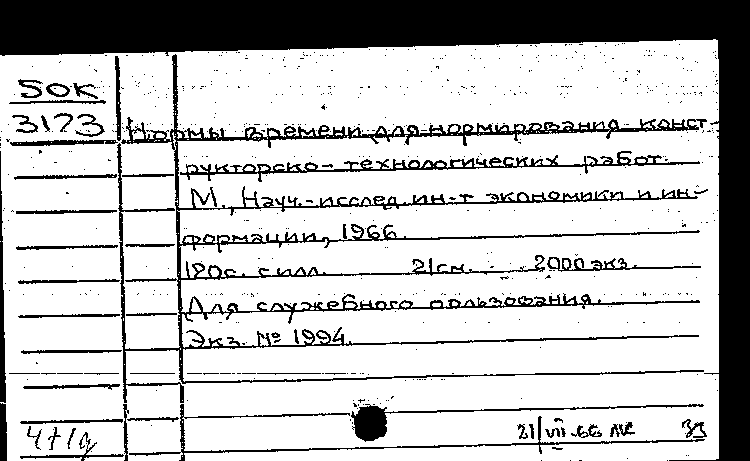 50К
3173
Нормы времени для нормирования конст-
рукторско-технологических работ.
М., Науч.-исслед. ин-т экономики и ин-
формации, 1966.
120с. с илл. 21см. 2000 экз.
Для служебного пользования.
Экз. № 1994.
21/VII-66